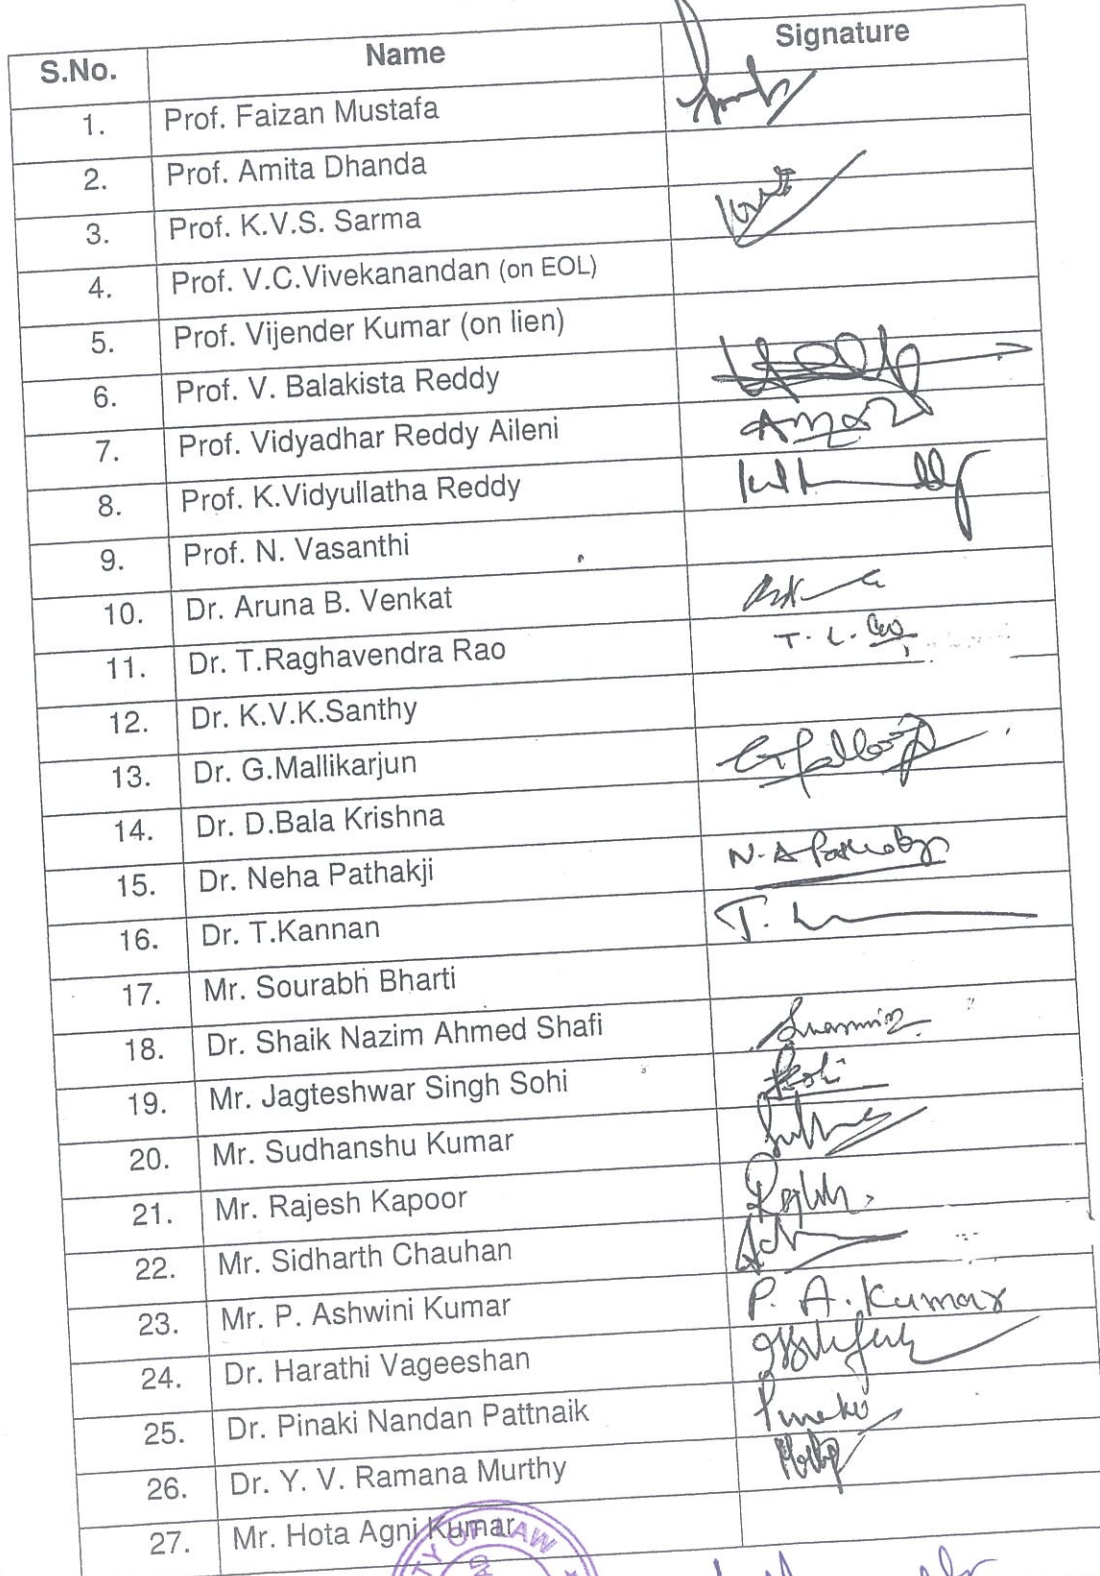 S.No. Name Signature
1. Prof. Faizan Mustafa
2. Prof. Amita Dhanda
3. Prof. K.V.S. Sarma
4. Prof. V.C.Vivekanandan (on EOL)
5. Prof. Vijender Kumar (on lien)
6. Prof. V. Balakista Reddy
7. Prof. Vidyadhar Reddy Aileni
8. Prof. K.Vidyullatha Reddy
9. Prof. N. Vasanthi
10. Dr. Aruna B. Venkat
11. Dr. T.Raghavendra Rao
12. Dr. K.V.K.Santhy
13. Dr. G.Mallikarjun
14. Dr. D.Bala Krishna
15. Dr. Neha Pathakji
16. Dr. T.Kannan
17. Mr. Sourabh Bharti
18. Dr. Shaik Nazim Ahmed Shafi
19. Mr. Jagteshwar Singh Sohi
20. Mr. Sudhanshu Kumar
21. Mr. Rajesh Kapoor
22. Mr. Sidharth Chauhan
23. Mr. P. Ashwini Kumar P. A. Kumar
24. Dr. Harathi Vageeshan
25. Dr. Pinaki Nandan Pattnaik
26. Dr. Y. V. Ramana Murthy
27. Mr. Hota Agni Kumar
OF LAW